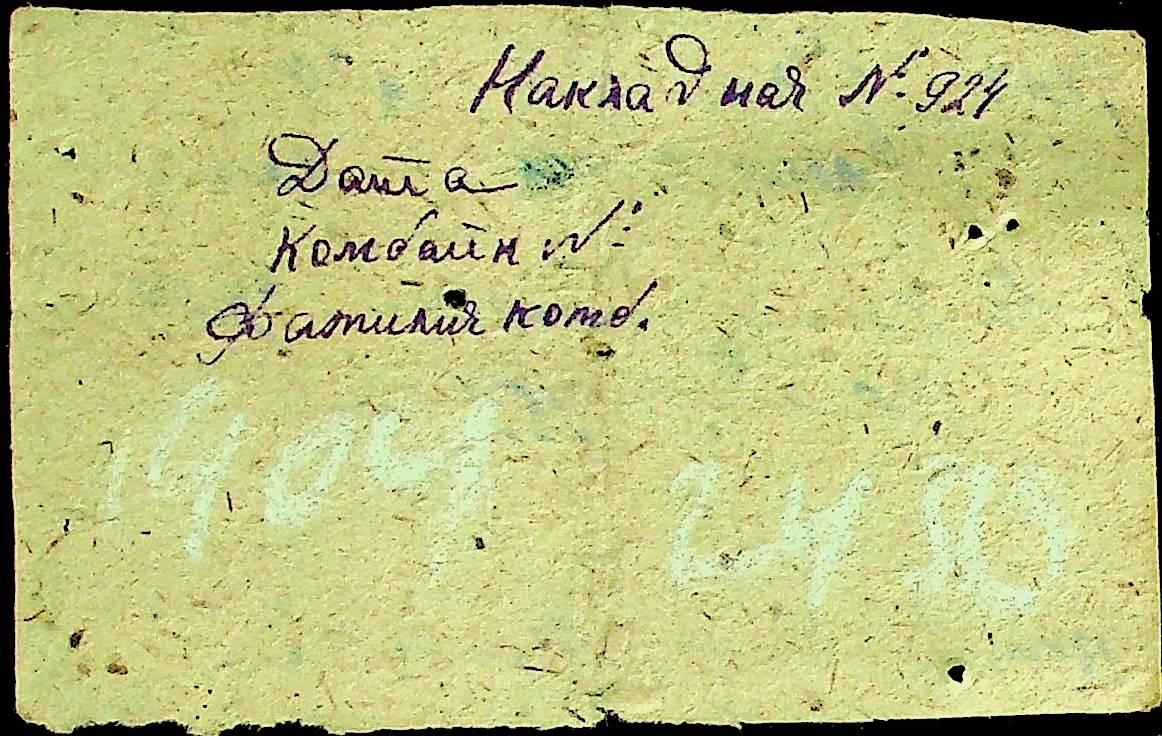 Накладная № 924
Дата
Комбайн №
Фамилия комб.
1404